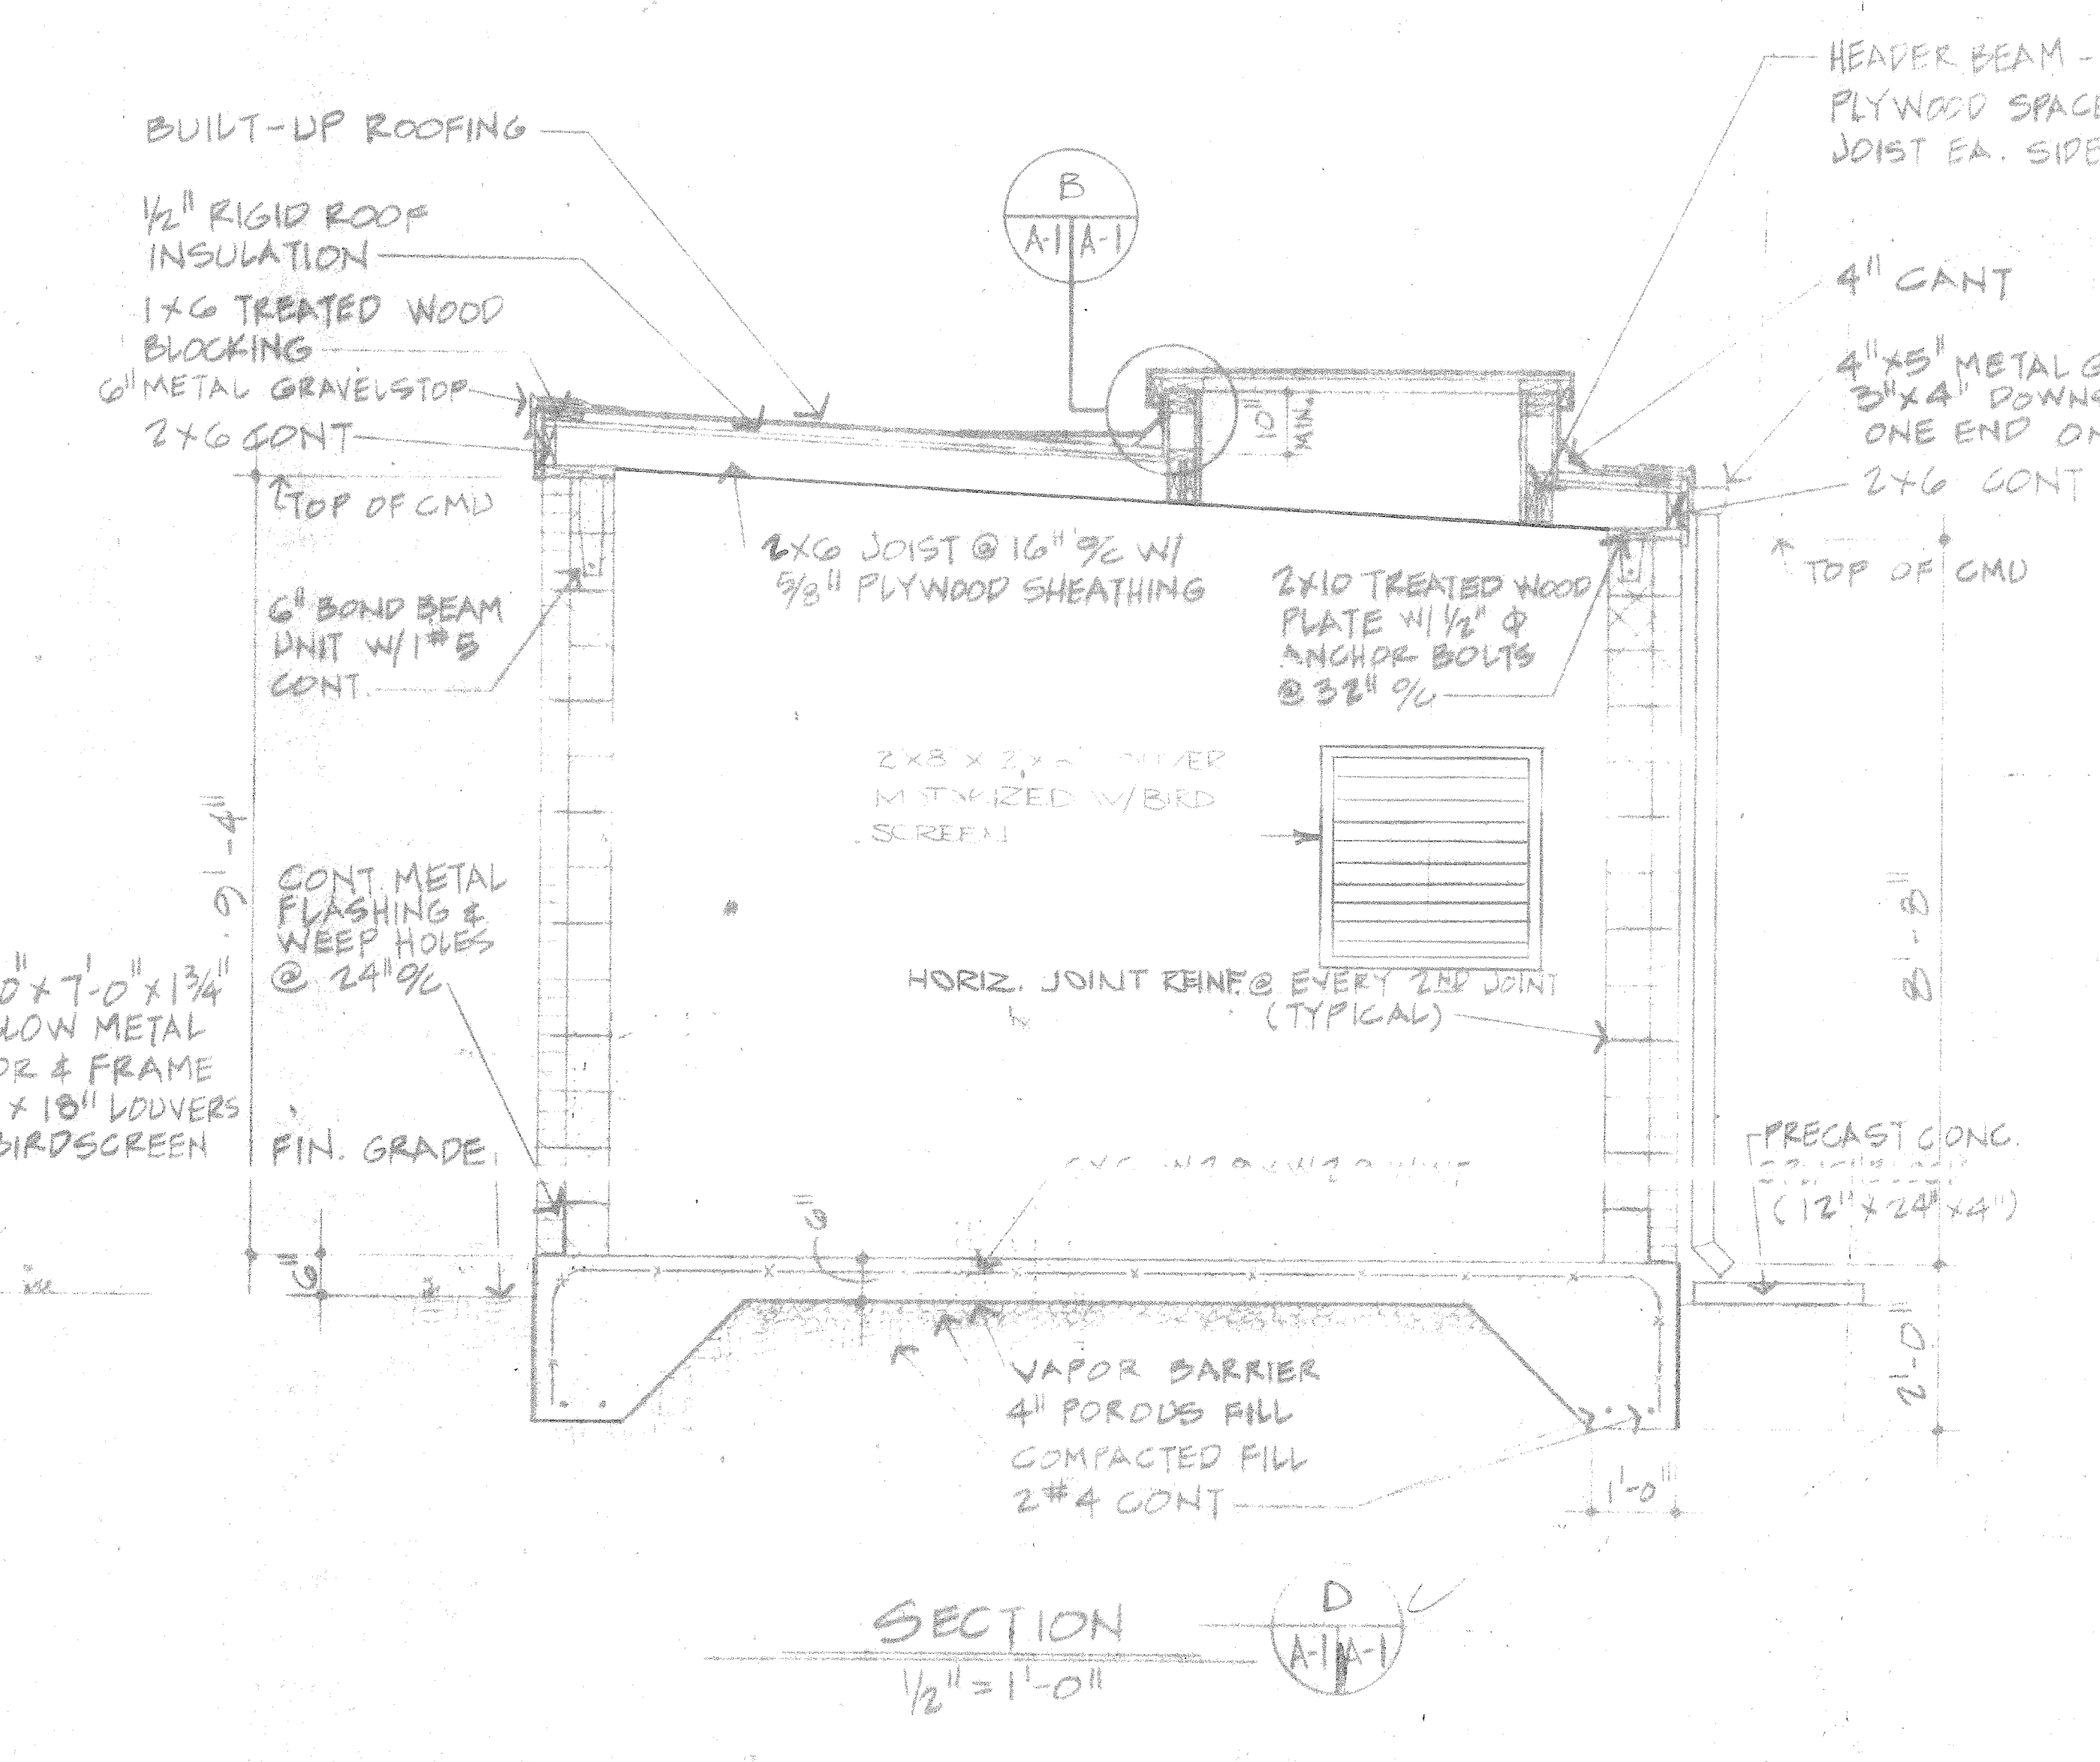 BUILT-UP ROOFING
1/2" RIGID ROOF
INSULATION
1X6 TREATED WOOD
BLOCKING
6" METAL GRAVELSTOP
2X6 CONT
TOP OF CMU
6" BOND BEAM
UNIT W/1 #5
CONT.
9'-4"
CONT. METAL
FLASHING &
WEEP HOLES
@ 24" O/C
0" X 7'-0" X 1 3/4"
LOW METAL
OR & FRAME
X 18" LOUVERS
BIRDSCREEN
FIN. GRADE
6"
B
A-1 A-1
10"
MIN.
2X6 JOIST @ 16" O/C W/
5/8" PLYWOOD SHEATHING
2X10 TREATED WOOD
PLATE W/ 1/2" Φ
ANCHOR BOLTS
@ 32" O/C
2X8 X
W/BIRD
SCREEN
HORIZ. JOINT REINF. @ EVERY 2ND JOINT
(TYPICAL)
6"
VAPOR BARRIER
4" POROUS FILL
COMPACTED FILL
2 #4 CONT
HEADER BEAM -
PLYWOOD SPACE
JOIST EA. SIDE
4" CANT
4"X5" METAL G
3"X4" DOWNS
ONE END ON
2X6 CONT
TOP OF CMU
8'-8"
PRECAST CONC.
(12" X 24" X 4")
2'-0"
1'-0"
SECTION
1/2" = 1'-0"
D
A-1 A-1